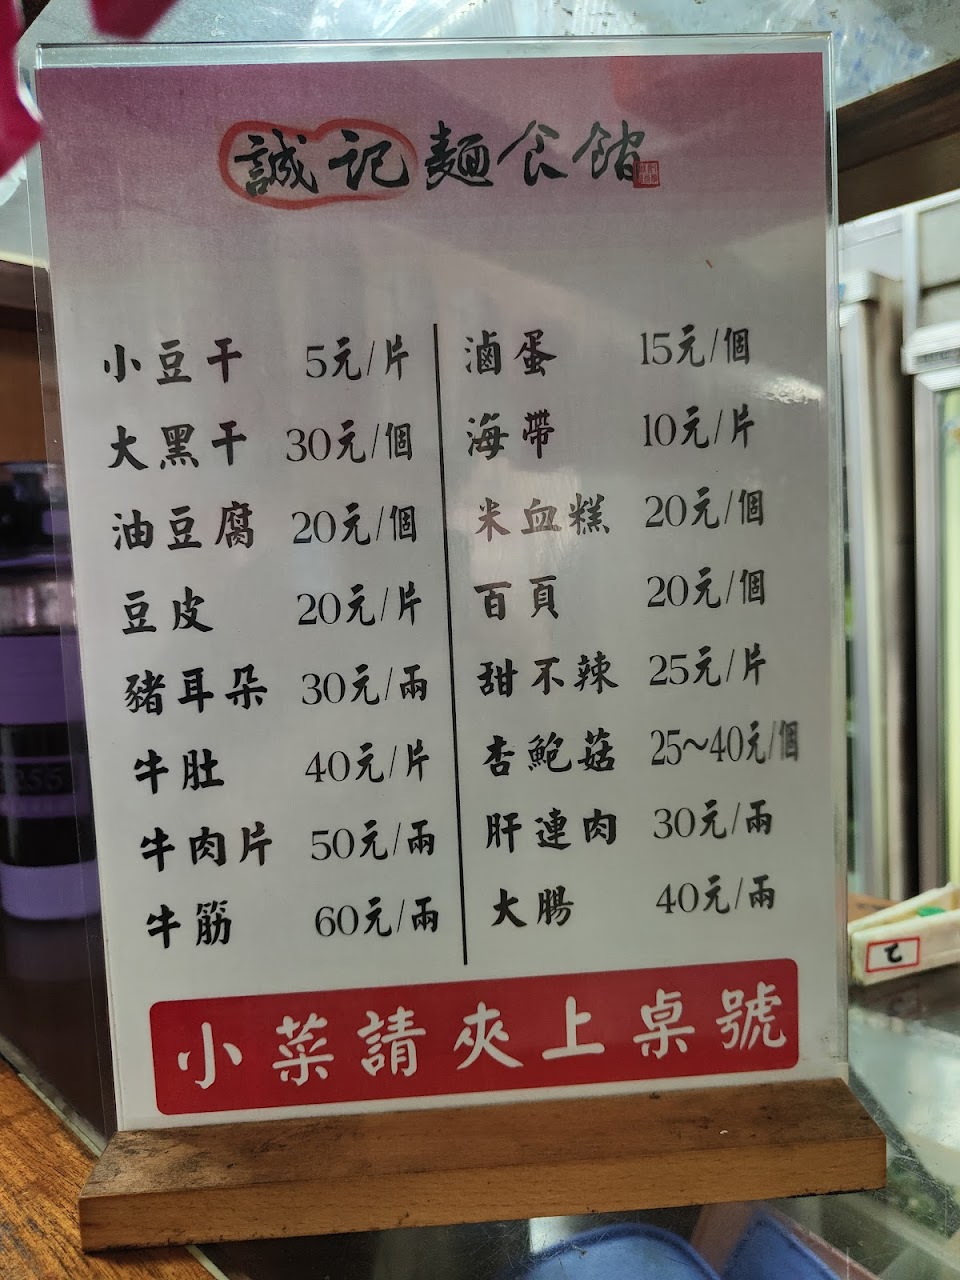 誠記麵食館
小豆干 5元/片
大黑干 30元/個
油豆腐 20元/個
豆皮 20元/片
豬耳朵 30元/兩
牛肚 40元/片
牛肉片 50元/兩
牛筋 60元/兩
滷蛋 15元/個
海帶 10元/片
米血糕 20元/個
百頁 20元/個
甜不辣 25元/片
杏鮑菇 25~40元/個
肝連肉 30元/兩
大腸 40元/兩
小菜請夾上桌號